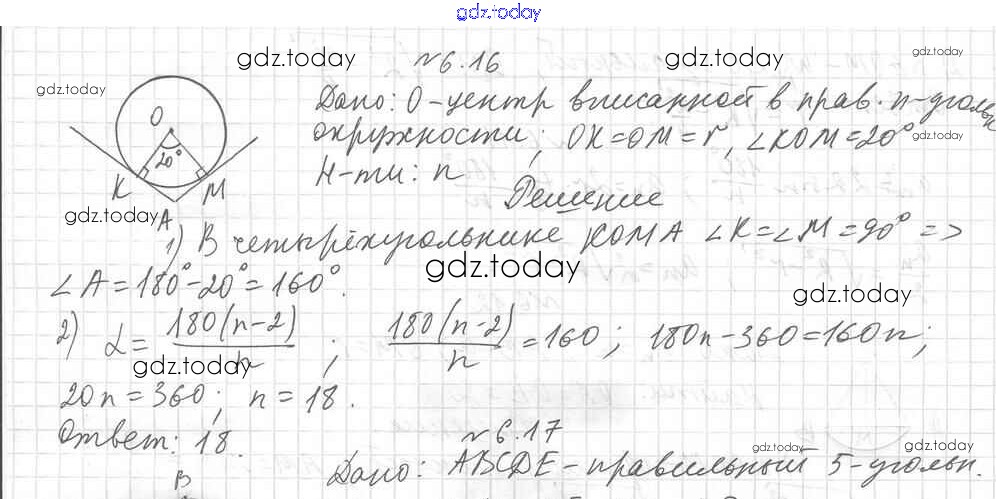 gdz.today
№6.16
gdz.today gdz.today gdz.today
gdz.today
Дано: О-центр вписанной в прав. n-угольн
окружности; OK=OM=r, ∠KOM=20°
gdz.today
Н-ти: n
O
20°
K
M
A
gdz.today
Решение
1) В четырёхугольнике KOMA ∠K=∠M=90° =>
gdz.today
∠A=180°-20°=160°.
gdz.today
2) α= 180(n-2)/n ; 180(n-2)/n =160; 180n-360=160n;
gdz.today
20n=360; n=18.
Ответ: 18.
№6.17
gdz.today gdz.today
Дано: ABCDE-правильный 5-угольн.
B